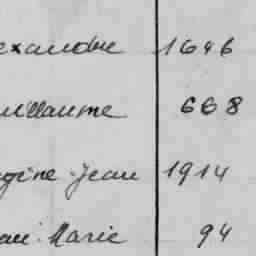 exandre 1646
uillaume 668
gine Jean 1914
an Marie 94